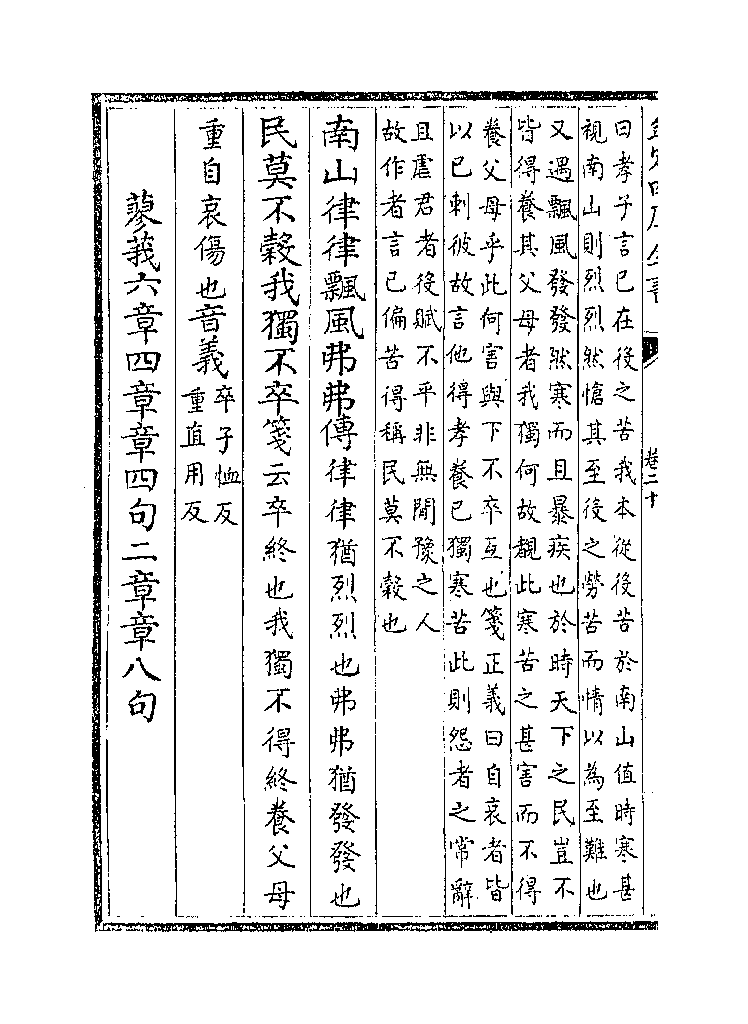 欽定四庫全書
卷二十
曰孝子言已在役之苦我本從役苦於南山值時寒甚
視南山則烈烈然愴其至役之勞苦而情以為至難也
又遇飄風發發然寒而且暴疾也於時天下之民豈不
皆得養其父母者我獨何故覩此寒苦之甚害而不得
養父母乎此何害與下不卒互也箋正義曰自哀者皆
以已刺彼故言他得孝養已獨寒苦此則怨者之常辭
且虐君者役賦不平非無閒豫之人
故作者言已偏苦得稱民莫不穀也
南山律律飄風弗弗傳律律猶烈烈也弗弗猶發發也
民莫不穀我獨不卒箋云卒終也我獨不得終養父母
重自哀傷也音義
卒子恤反
重直用反
蓼莪六章四章章四句二章章八句